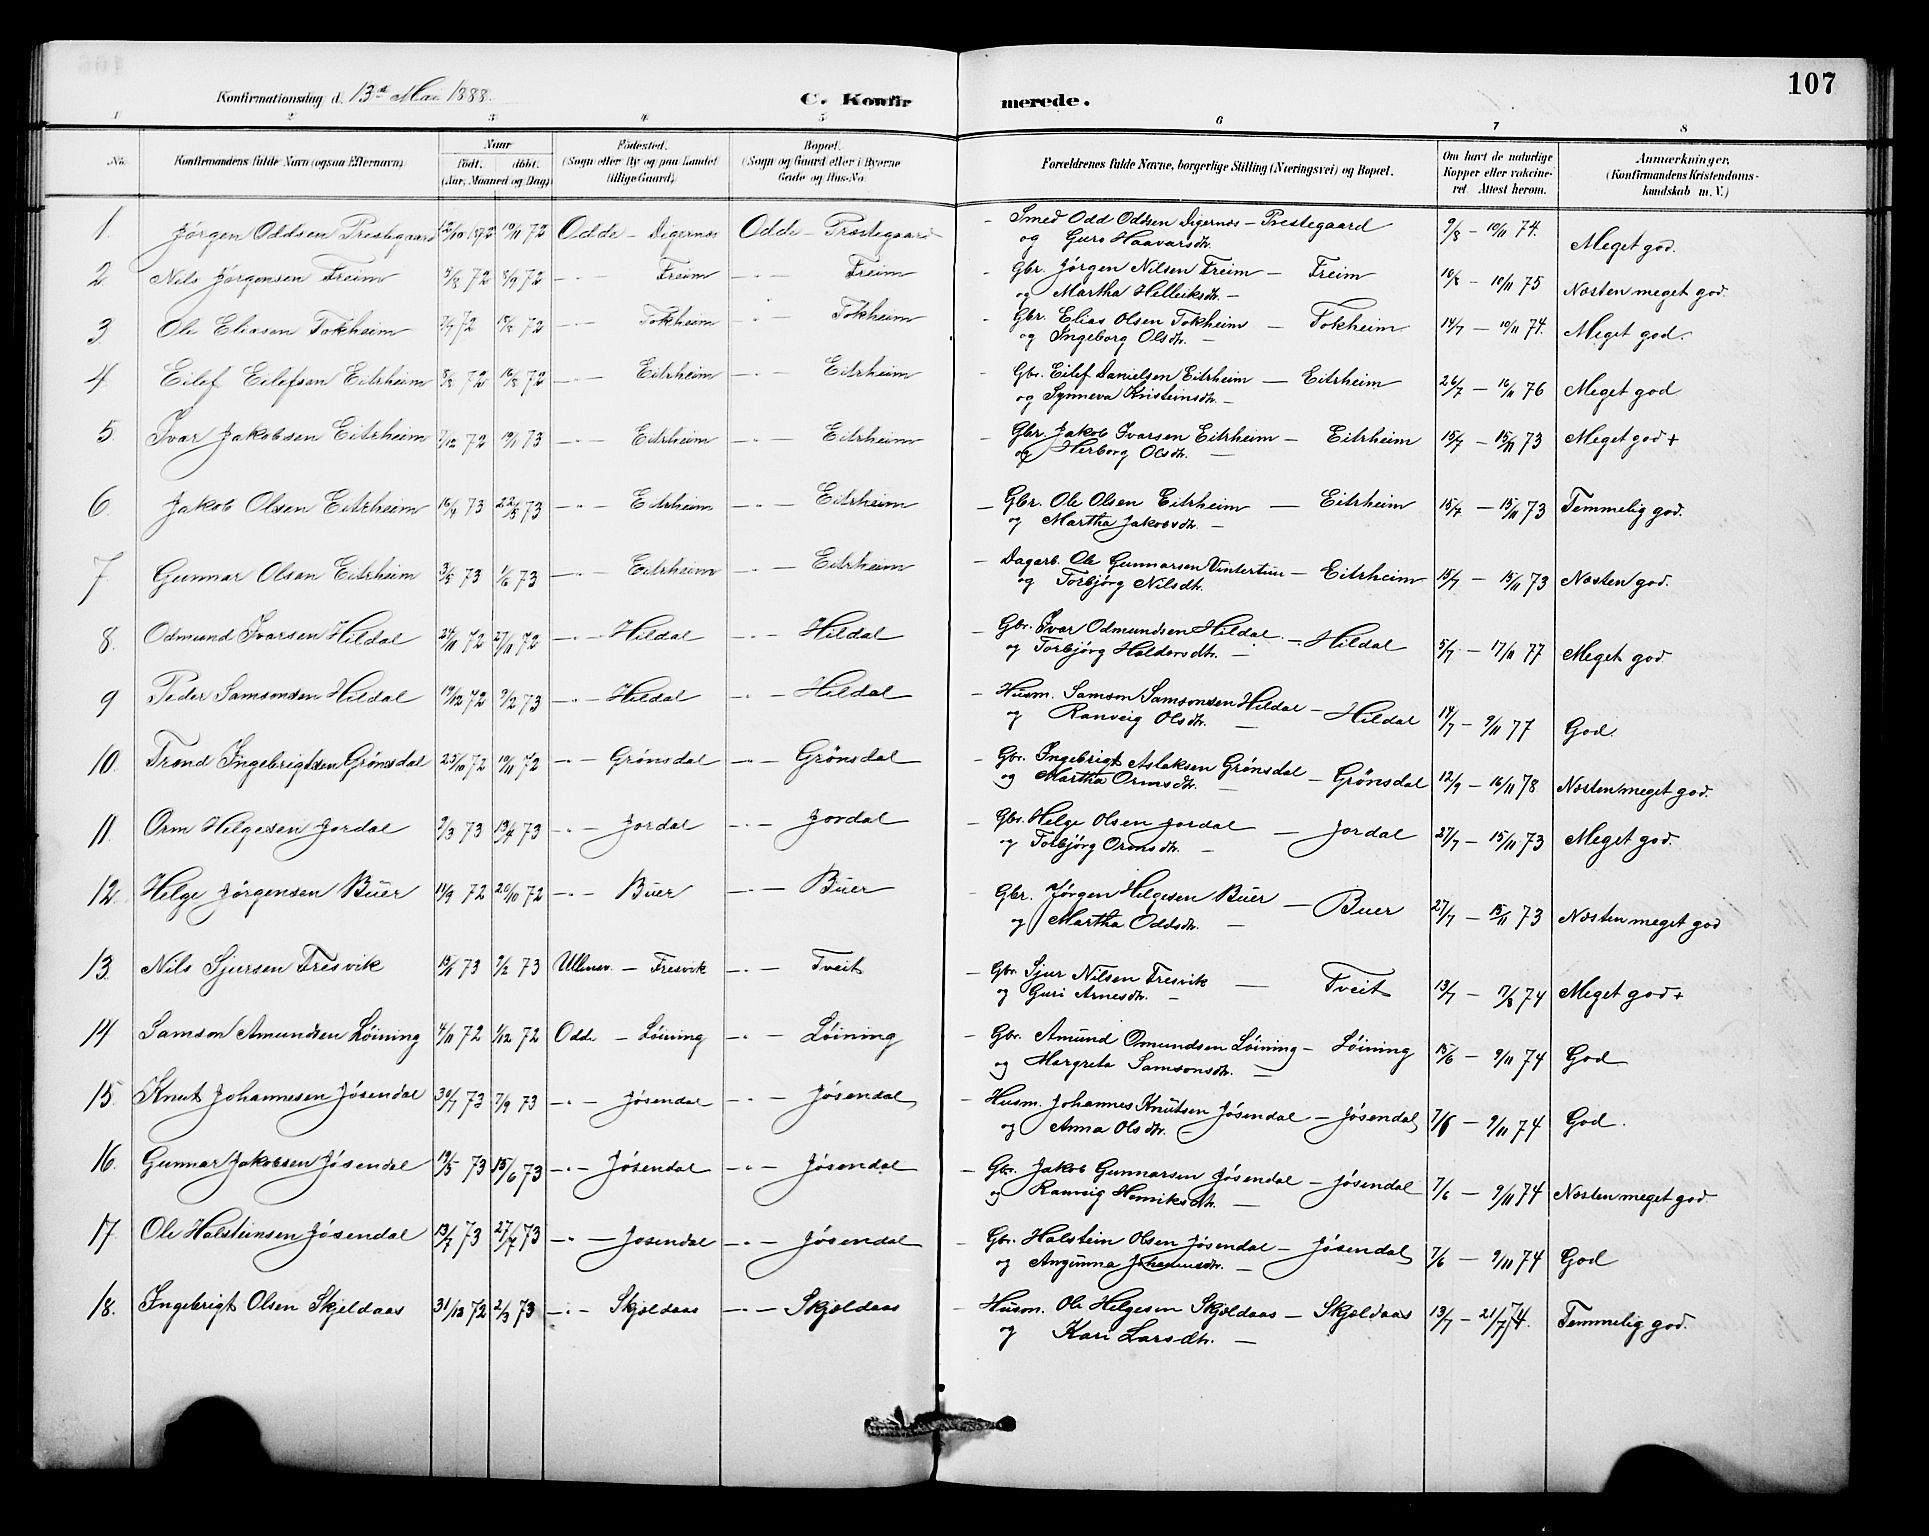 107
Konfirmationsdag d. 13de Mai 1888.
C. Konfirmerede.
1 2 3 4 5 6 7 8
No. Konfirmandens fulde Navn (ogsaa Efternavn). Naar født. døbt. (Aar, Maaned og Dag) Fødested. (Sogn eller By og paa Landet tillige Gaard). Bopæl. (Sogn og Gaard eller i Byerne Gade og Hus-No. Forældrenes fulde Navne, borgerlige Stilling (Næringsvei) og Bopæl. Om havt de naturlige Kopper eller vakcineret. Attest herom. Anmærkninger. (Konfirmandens Kristendomskundskab m. V.)
1. Jørgen Oddsen Prestegaard 12/10 1872 10/11 72 Odde – Digernes Odde – Præstegaard – Smed Odd Oddsen Digernes – Prestegaard 9/8 – 10/11 74. Meget god.
og Guro Haavarsdtr.
2. Nils Jørgensen Freim 5/8 72 8/9 72 –"– Freim –"– Freim – Gbr. Jørgen Nilsen Freim – Freim 10/8 – 10/11 75 Næsten meget god.
og Martha Helleiksdtr. –
3. Ole Eliasen Tokheim 7/7 72 18/8 72 –"– Tokheim " Tokheim – Gbr. Elias Olsen Tokheim – Tokheim 14/7 – 10/11 74. Meget god.
og Ingeborg Olsdtr. –
4. Eilef Eilefsen Eitrheim 8/8 72 18/8 72 –"– Eitrheim –"– Eitrheim – Gbr. Eilef Danielsen Eitrheim – Eitrheim 26/7 – 16/11 76 Meget god
og Synneva Kristensdtr. –
5. Ivar Jakobsen Eitrheim 7/12 72 19/1 73 –"– Eitrheim –"– Eitrheim – Gbr. Jakob Ivarsen Eitrheim – Eitrheim 15/7 – 15/11 73 Meget god +
og Herborg Olsdtr. –
6. Jakob Olsen Eitrheim 16/4 73 22/5 73 –"– Eitrheim –"– Eitrheim – Gbr. Ole Olsen Eitrheim – Eitrheim 15/7 – 15/11 73 Temmelig god.
og Martha Jakobsdtr. –
7. Gunnar Olsen Eitrheim 3/5 73 1/6 73 –"– Eitrheim –"– Eitrheim – Dagarb. Ole Gunnarsen Vintertun – Eitrheim 15/7 – 15/11 73 Næsten god.
og Torbjørg Nilsdtr.
8. Odmund Ivarsen Hildal 24/11 72 27/11 72 –"– Hildal –"– Hildal – Gbr. Ivar Odmundsen Hildal – Hildal 5/7 – 17/11 77 Meget god
og Torbjørg Haldorsdtr. –
9 Peder Samsonsen Hildal 19/12 72 9/2 73 –"– Hildal –"– Hildal – Husm. Samson Samsonsen Hildal – Hildal 14/7 – 9/11 77 God.
og Ranveig Olsdtr. –
10. Trond Ingebrigtsen Grønsdal 25/10 72 10/11 72 –"– Grønsdal –"– Grønsdal – Gbr. Ingebrigt Aslaksen Grønsdal – Grønsdal 12/9 – 16/11 78 Næsten meget god.
og Martha Ormsdtr. –
11. Orm Helgesen Jordal 9/3 73 13/4 73 –"– Jordal –"– Jordal – Gbr. Helge Olsen Jordal – Jordal 27/7 – 15/11 73 Meget god.
og Torbjørg Ormsdtr. –
12. Helge Jørgensen Buer 14/9 72 20/10 72 –"– Buer –"– Buer – Gbr. Jørgen Helgesen Buer – Buer 27/7 – 15/11 73 Næsten meget god
og Martha Oddsdtr. –
13. Nils Sjursen Tresvik 13/1 73 9/2 73 Ullensv. – Tresvik –"– Tveit – Gbr. Sjur Nilsen Tresvik – Tveit 13/7 – 17/8 74 Meget god +
og Guri Arnesdtr. –
14 Samson Amundsen Løining 4/11 72 1/12 72 Odde – Løining –"– Løining – Gbr. Amund Omundsen Løining – Løining 15/6 – 9/11 74 God
og Margreta Samsonsdtr. –
15. Knut Johannesen Jøsendal 30/7 73 7/9 73 –"– Jøsendal –"– Jøsendal – Husm. Johannes Knutsen Jøsendal – Jøsendal 7/6 – 9/11 74 God.
og Anna Olsdtr. –
16. Gunnar Jakobsen Jøsendal 19/5 73 15/6 73 –"– Jøsendal –"– Jøsendal – Gbr. Jakob Gunnarsen Jøsendal – Jøsendal 7/6 – 9/11 74 Næsten meget god.
og Ranveig Henriksdtr. –
17. Ole Halsteinsen Jøsendal 13/7 73 27/7 73 –"– Jøsendal –"– Jøsendal – Gbr. Halstein Olsen Jøsendal – Jøsendal 7/6 – 9/11 74 God
og Angunna Johannesdtr. –
18. Ingebrigt Olsen Skjeldaas 31/12 72 2/3 73 –"– Skjældaas –"– Skjældaas – Husm. Ole Helgesen Skjældaas – Skjældaas 13/7 – 21/7 74. Temmelig god.
og Kari Larsdtr. –